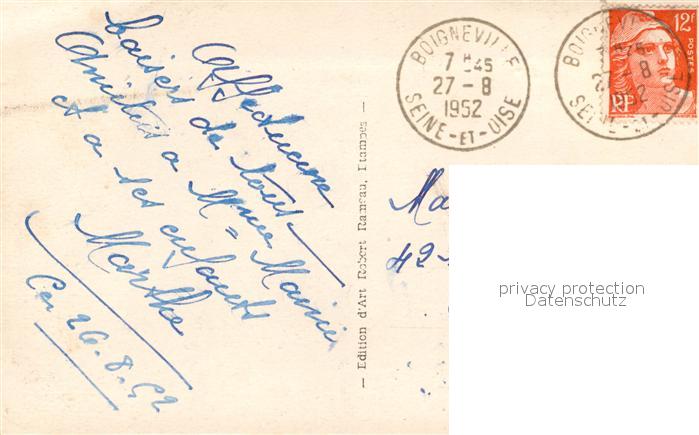 Affectueux
baisers de tous
Amitiés a Mme Mamie
et a ses enfants
Marthe
Ce 26.8.52
— Edition d'Art Robert Rameau, Etampes —
BOIGNEVILLE
7H45
27-8
1952
SEINE-ET-OISE
BOIGNEVILLE
27-8
SEINE-ET-OISE
12F
POSTES
RF
Ma
42-
privacy protection
Datenschutz